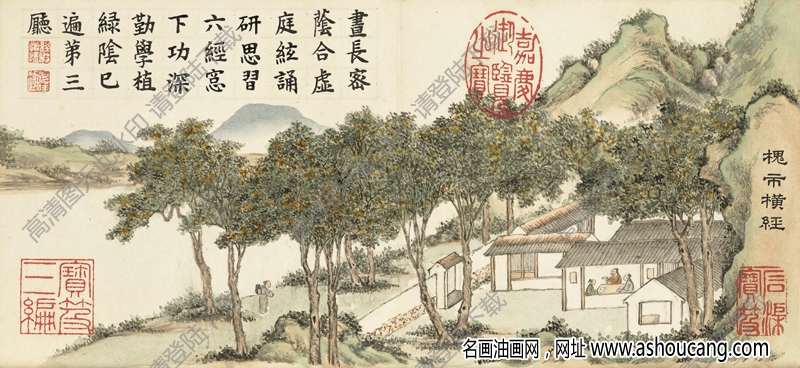 晝長密
蔭合虛
庭絃誦
研思習
六經窓
下功深
勤學植
綠陰已
遍第三
廳
嘉慶御覽之寶
槐市橫經
石渠寶笈
寶笈三編
高清图去水印 请登陆下载
名画油画网,网址 www.ashoucang.com